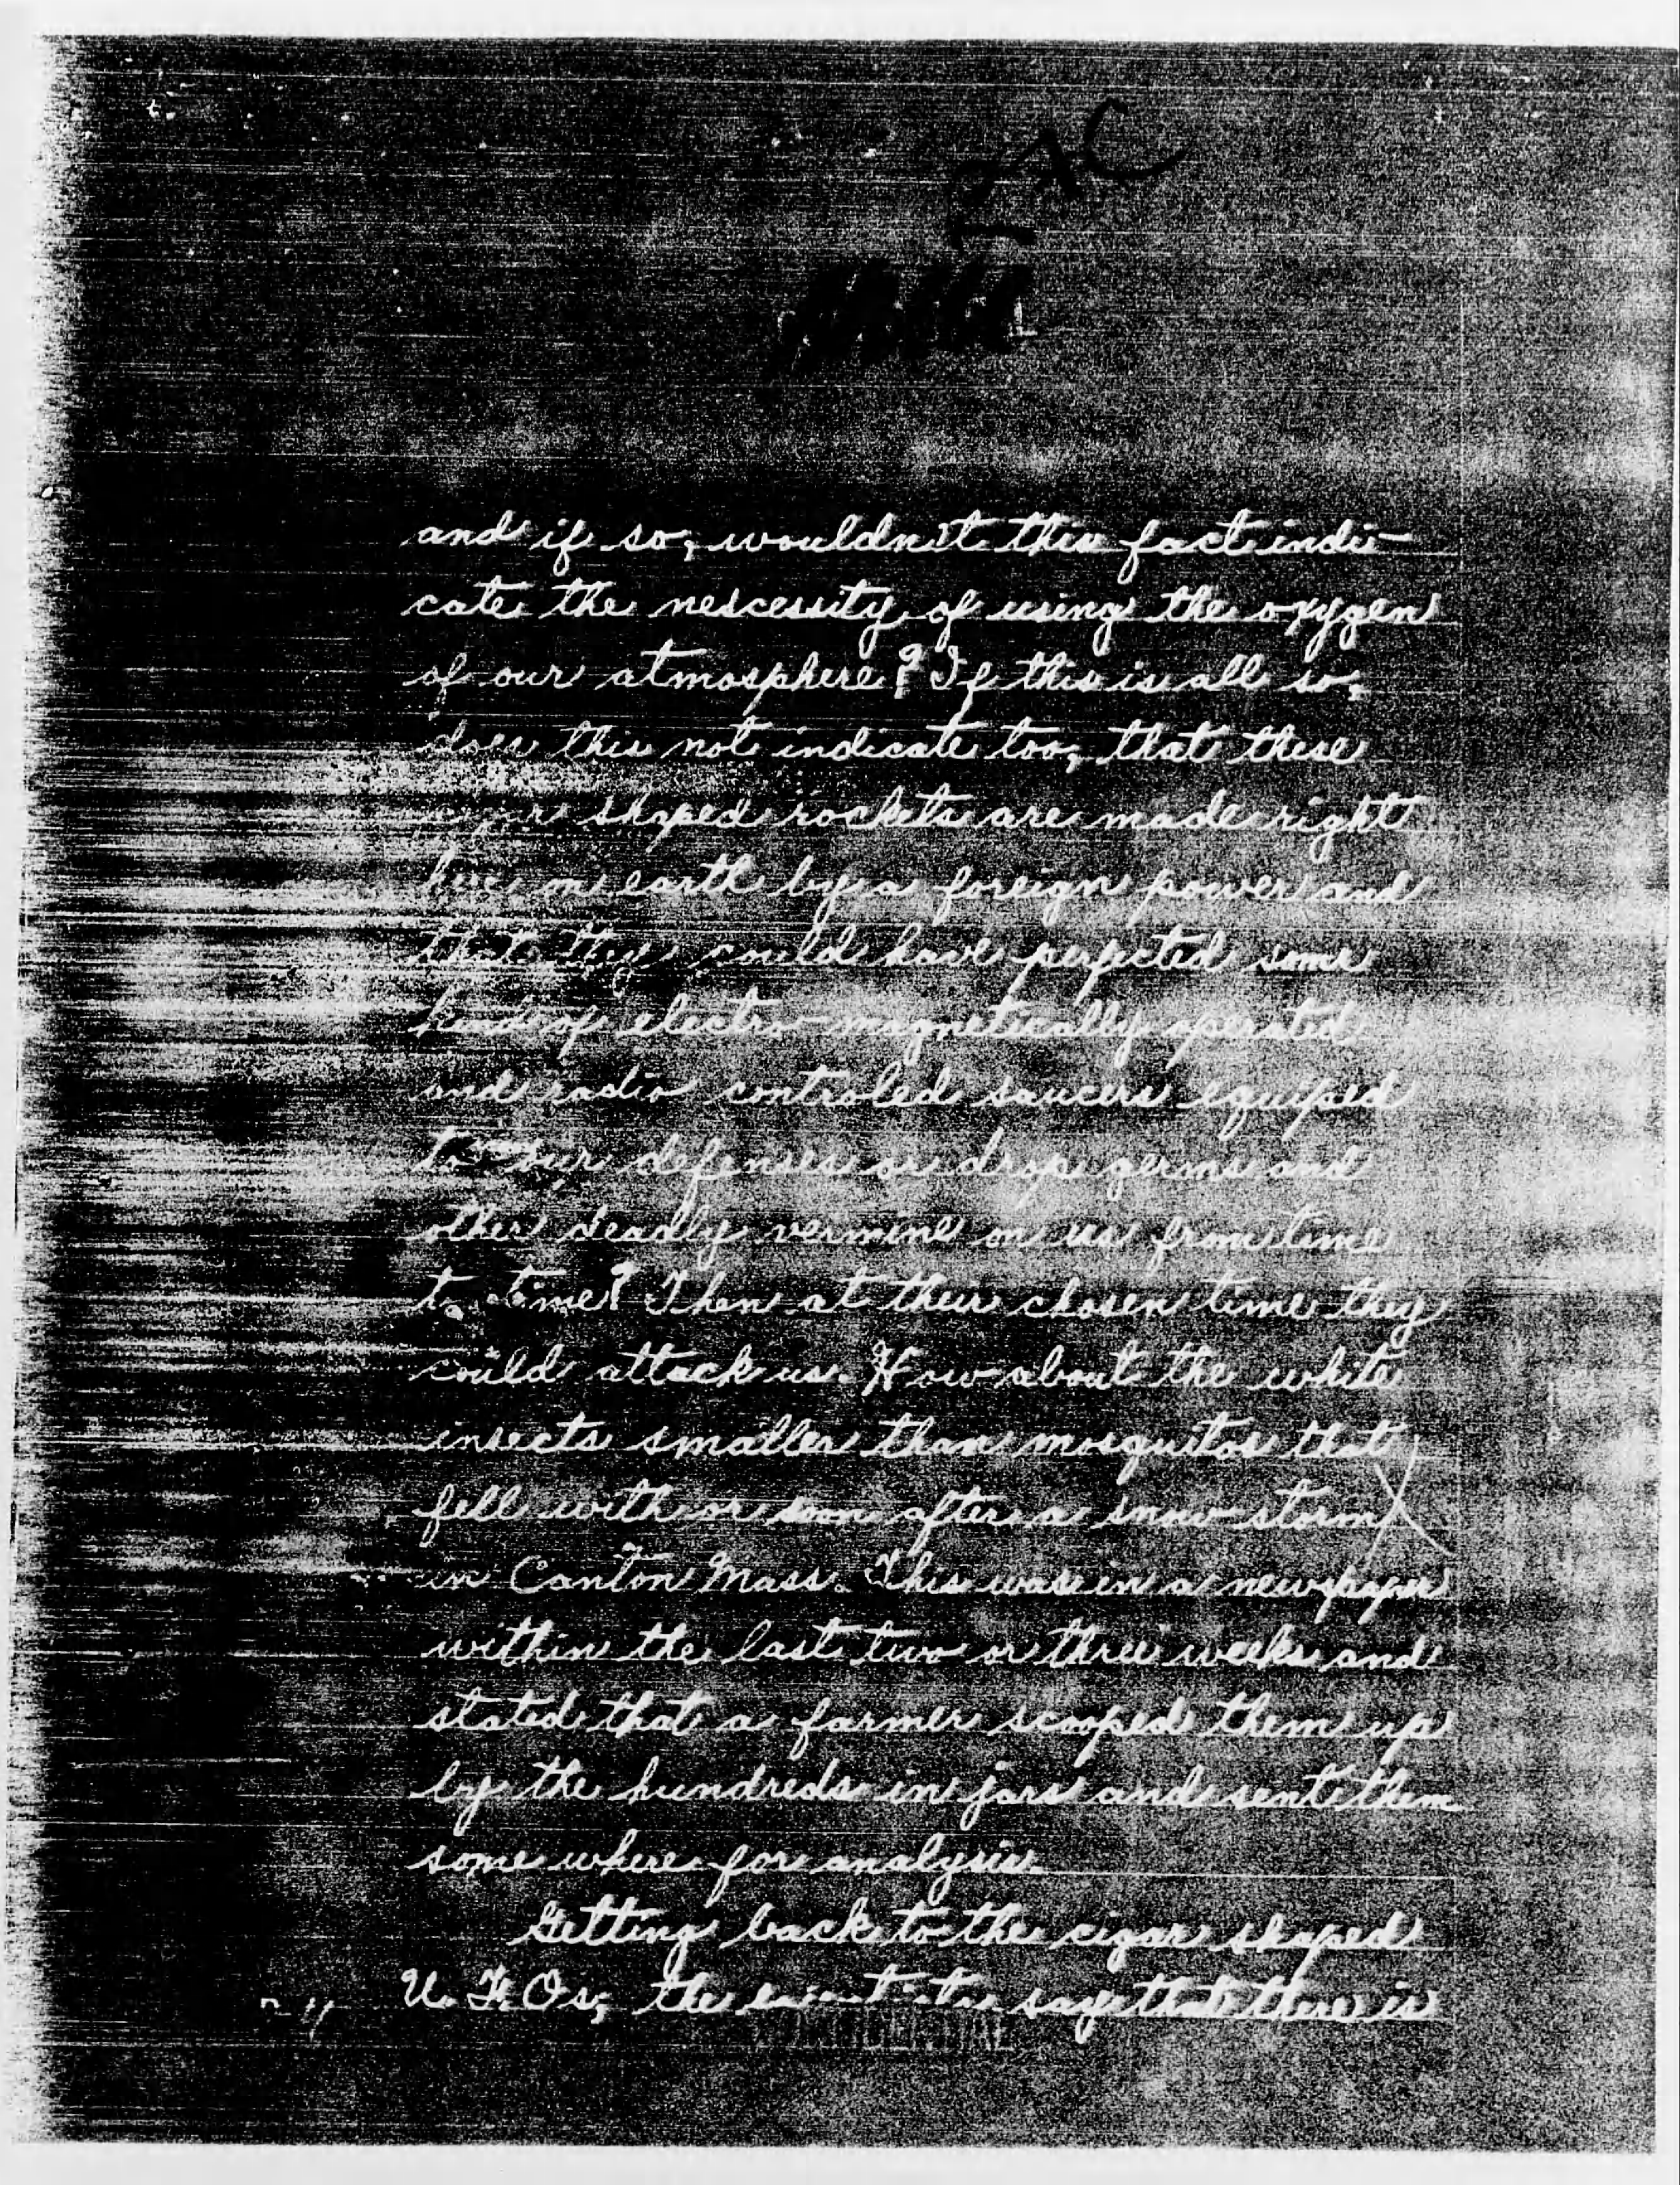 and if so, wouldn't this fact indi-
cate the nescessity of using the oxygen
of our atmosphere? If this is all so,
does this not indicate too, that these
shaped rockets are made right
here on earth by a foreign power and
that they could have perfected some
kind of electro-magnetically operated
and radio controled saucers equiped
to our defenses or drop germs and
other deadly vermine on us from time
to time? Then at their chosen time they
could attack us. How about the white
insects smaller than mosquitos that
fell with or soon after a snow-storm
in Canton Mass. This was in a newspaper
within the last two or three weeks and
stated that a farmer scooped them up
by the hundreds in jars and sent them
some where for analysis.
Getting back to the cigar shaped
U. F. Os, the say that there is
CONFIDENTIAL